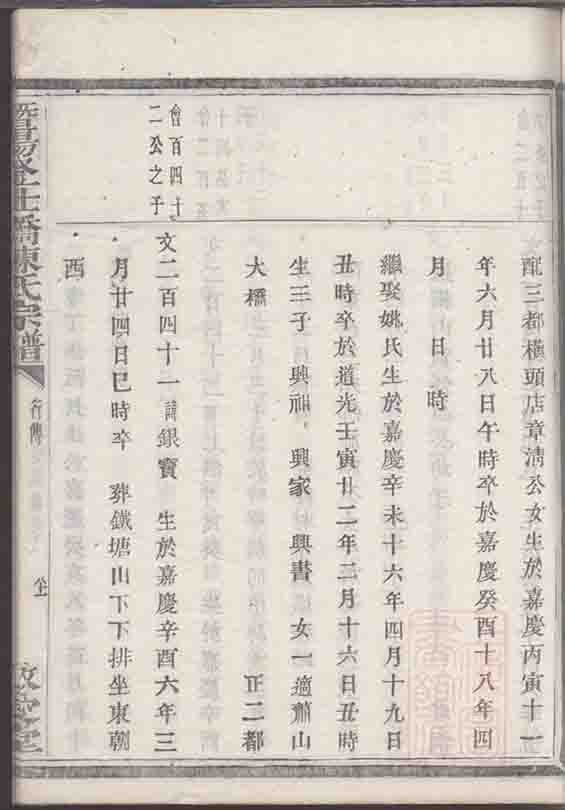 配三都橫頭店章淸公女生於嘉慶丙寅十一
年六月廿八日午時卒於嘉慶癸酉十八年四
月　日　時
繼娶姚氏生於嘉慶辛未十六年四月十九日
丑時卒於道光壬寅廿二年二月十六日丑時
生三子　興福　興家　興書　女一適蕭山
大橋　正二都
會百四十
二公之子
文二百四十一諱銀寶　生於嘉慶辛酉六年三
月廿四日巳時卒　葬鐵塘山下下排坐東朝
西
陳氏宗譜
行傳